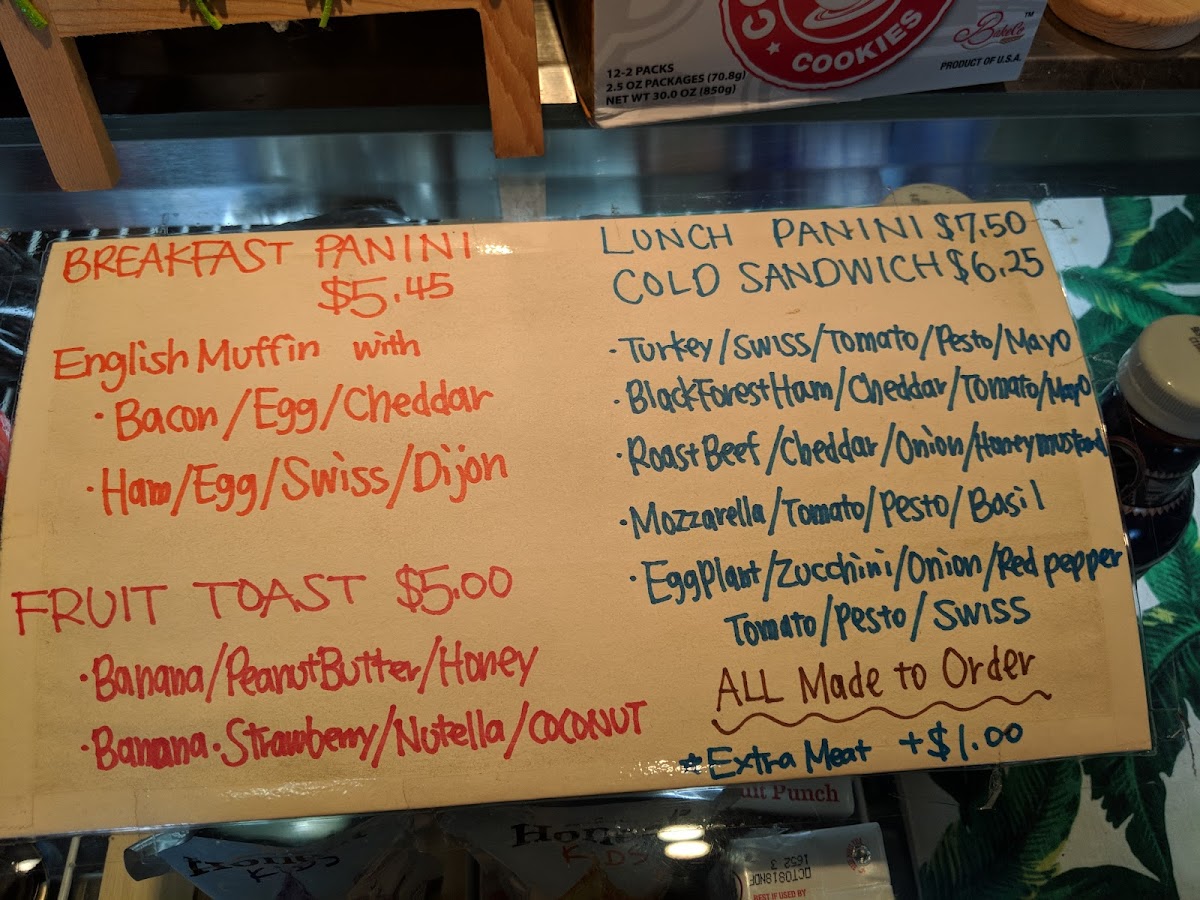 COOKIES
BakeCo ™
PRODUCT OF U.S.A.
12-2 PACKS
2.5 OZ PACKAGES (70.8g)
NET WT 30.0 OZ (850g)
BREAKFAST PANINI
$5.45
English Muffin with
• Bacon/Egg/Cheddar
• Ham/Egg/Swiss/Dijon
FRUIT TOAST $5.00
• Banana/PeanutButter/Honey
• Banana•Strawberry/Nutella/COCONUT
LUNCH PANINI $7.50
COLD SANDWICH $6.25
• Turkey/Swiss/Tomato/Pesto/Mayo
• BlackForestHam/Cheddar/Tomato/Mayo
• RoastBeef/Cheddar/Onion/Honeymustard
• Mozzarella/Tomato/Pesto/Basil
• EggPlant/Zucchini/Onion/Red pepper
Tomato/Pesto/Swiss
ALL Made to Order
*Extra Meat +$1.00
Punch
Honest
KIDS
Honest
KIDS
OCT0818NDF
1652 3
BEST IF USED BY